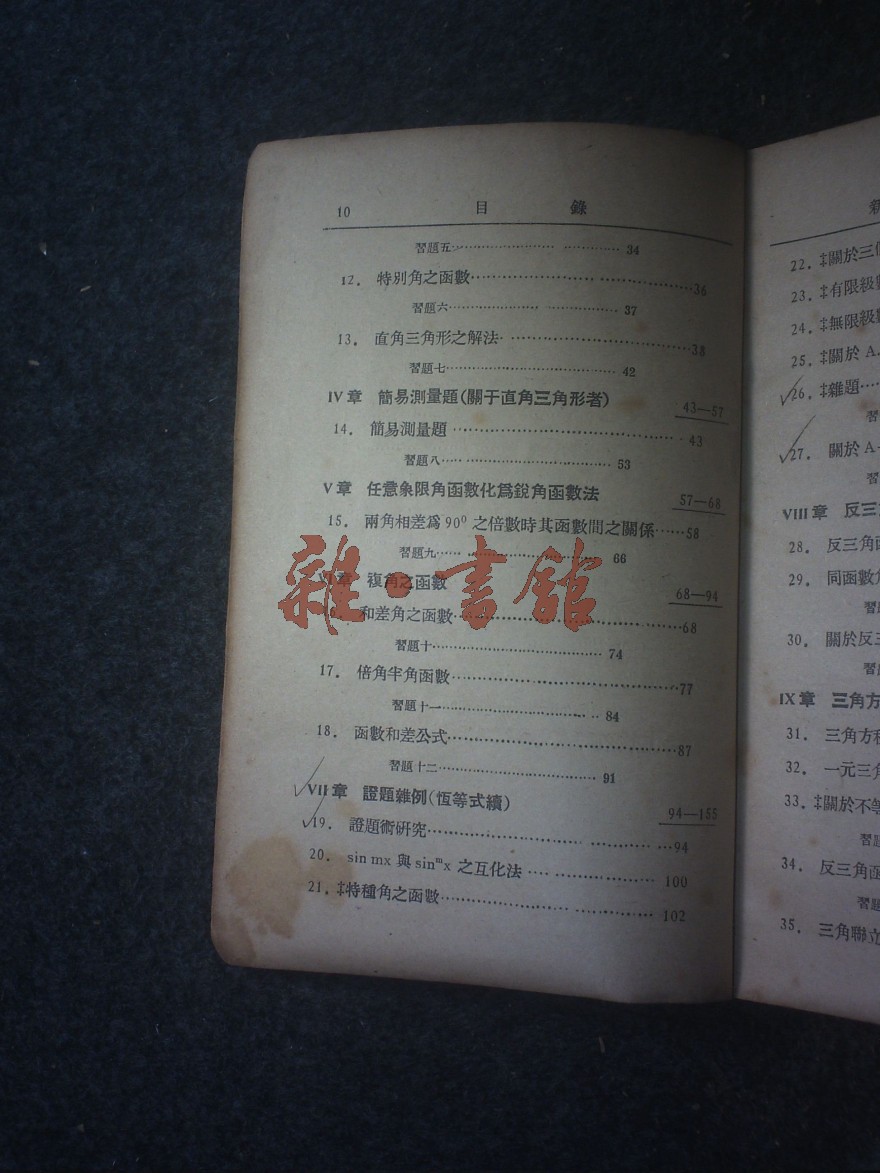 10 目 錄
習題五 34
12. 特別角之函數 36
習題六 37
13. 直角三角形之解法 38
習題七 42
IV章 簡易測量題(關于直角三角形者) 43—57
14. 簡易測量題 43
習題八 53
V章 任意象限角函數化爲銳角函數法 57—68
15. 兩角相差爲 90⁰ 之倍數時其函數間之關係 58
習題九 66
章 複角之函數 68—94
和差角之函數 68
習題十 74
17. 倍角半角函數 77
習題十一 84
18. 函數和差公式 87
習題十二 91
VII章 證題雜例(恆等式續) 94—155
19. 證題術硏究 94
20. sin mx 與 sinᵐx 之互化法 100
21. ‡特種角之函數 102
雜·書館
22. ‡關於三
23. ‡有限級
24. ‡無限級
25. ‡關於 A
26. ‡雜題
習
27. 關於 A
習
VIII章 反三
28. 反三角
29. 同函數
習
30. 關於反三
習
IX章 三角方
31. 三角方程
32. 一元三
33. ‡關於不等
習題
34. 反三角函
習題
35. 三角聯立